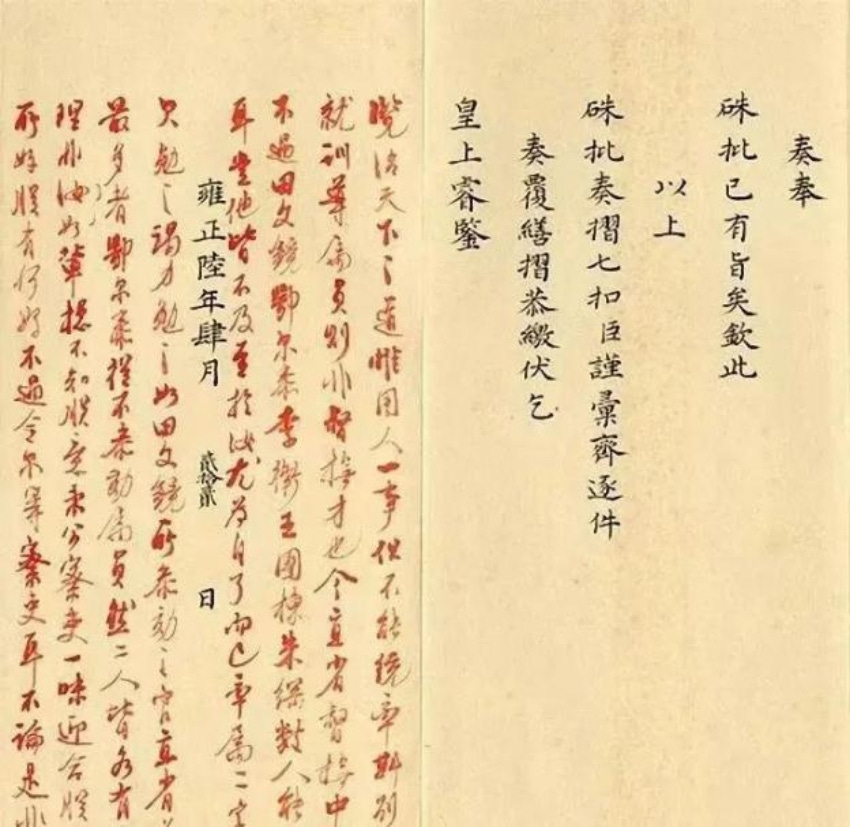 奏奉
硃批已有旨矣欽此
以上
硃批奏摺七扣臣謹彙齊逐件
奏覆繕摺恭繳伏乞
皇上睿鑒
覽治天下之道惟用人一事但不能統率
訓導屬員則非督撫才也今直省督撫中
不過田文鏡鄂尔泰李衛王國棟朱綱數人能
耳豈他皆不及至於汝尤为自了而已率屬二字
雍正陸年肆月貳拾貳日
只勉之竭力勉之如田文鏡所参劾之官直省
最多者鄂尔泰從不参劾屬員然二人皆各有
理非汝如輩總不知朕意秉公察吏一味迎合朕
所好朕有何好不過令尔等察吏耳不論是非